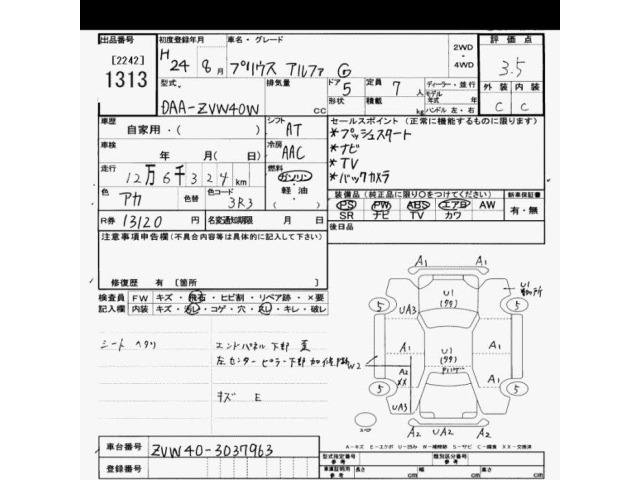 出品番号
[2242]
1313
初度登録年月
H 24年 8月
車名・グレード
プリウス アルファ G
2WD
・
4WD
評価点
3.5
外装 内装
C C
型式
DAA-ZVW40W
排気量
CC
ドア
5
形状
定員 7 人
積載 kg
ディーラー・並行
モデル年式 年式
ハンドル 左・右
車歴
自家用・( )
シフト
AT
セールスポイント(正常に機能するものに限ります)
*プッシュスタート
*ナビ
*TV
*バックカメラ
車検
年 月(日)
冷房
AAC
走行
12万6千324km
燃料
ガソリン
軽・油
色
アカ
色替
色コード
3R3
装備品(純正品に限り○をつけてください)
新車保証書
PS PW ABS エアB AW
SR ナビ TV カワ
有・無
R券 13120 円
名変通知期限 月 日
後日品
注意事項申告欄(不具合内容等は具体的に記入して下さい)
修復歴 有 [箇所 ]
検査員記入欄
FW キズ・飛石・ヒビ割・リペア跡・×要
内装 キズ・汚レ・コゲ・穴・スレ・キレ・破レ
シート ヘタリ
エンドパネル下部
左センターピラー下部
W2
キズ E
A1
A1
U1
(タタ)
U1
UA3
5
5
A1
U1
(タタ)
A1
A2
XX
A1
5
5
UA3
A2
UA2
A2
スペア
A-キズ E-エクボ U-凹み W-補修跡 S-サビ C-腐食 XX-交換済
車台番号
ZVW40-3037963
登録番号
型式指定番号
参考
類別区分番号
参考
車庫証明用
参考
長さ cm
幅 cm
高さ cm